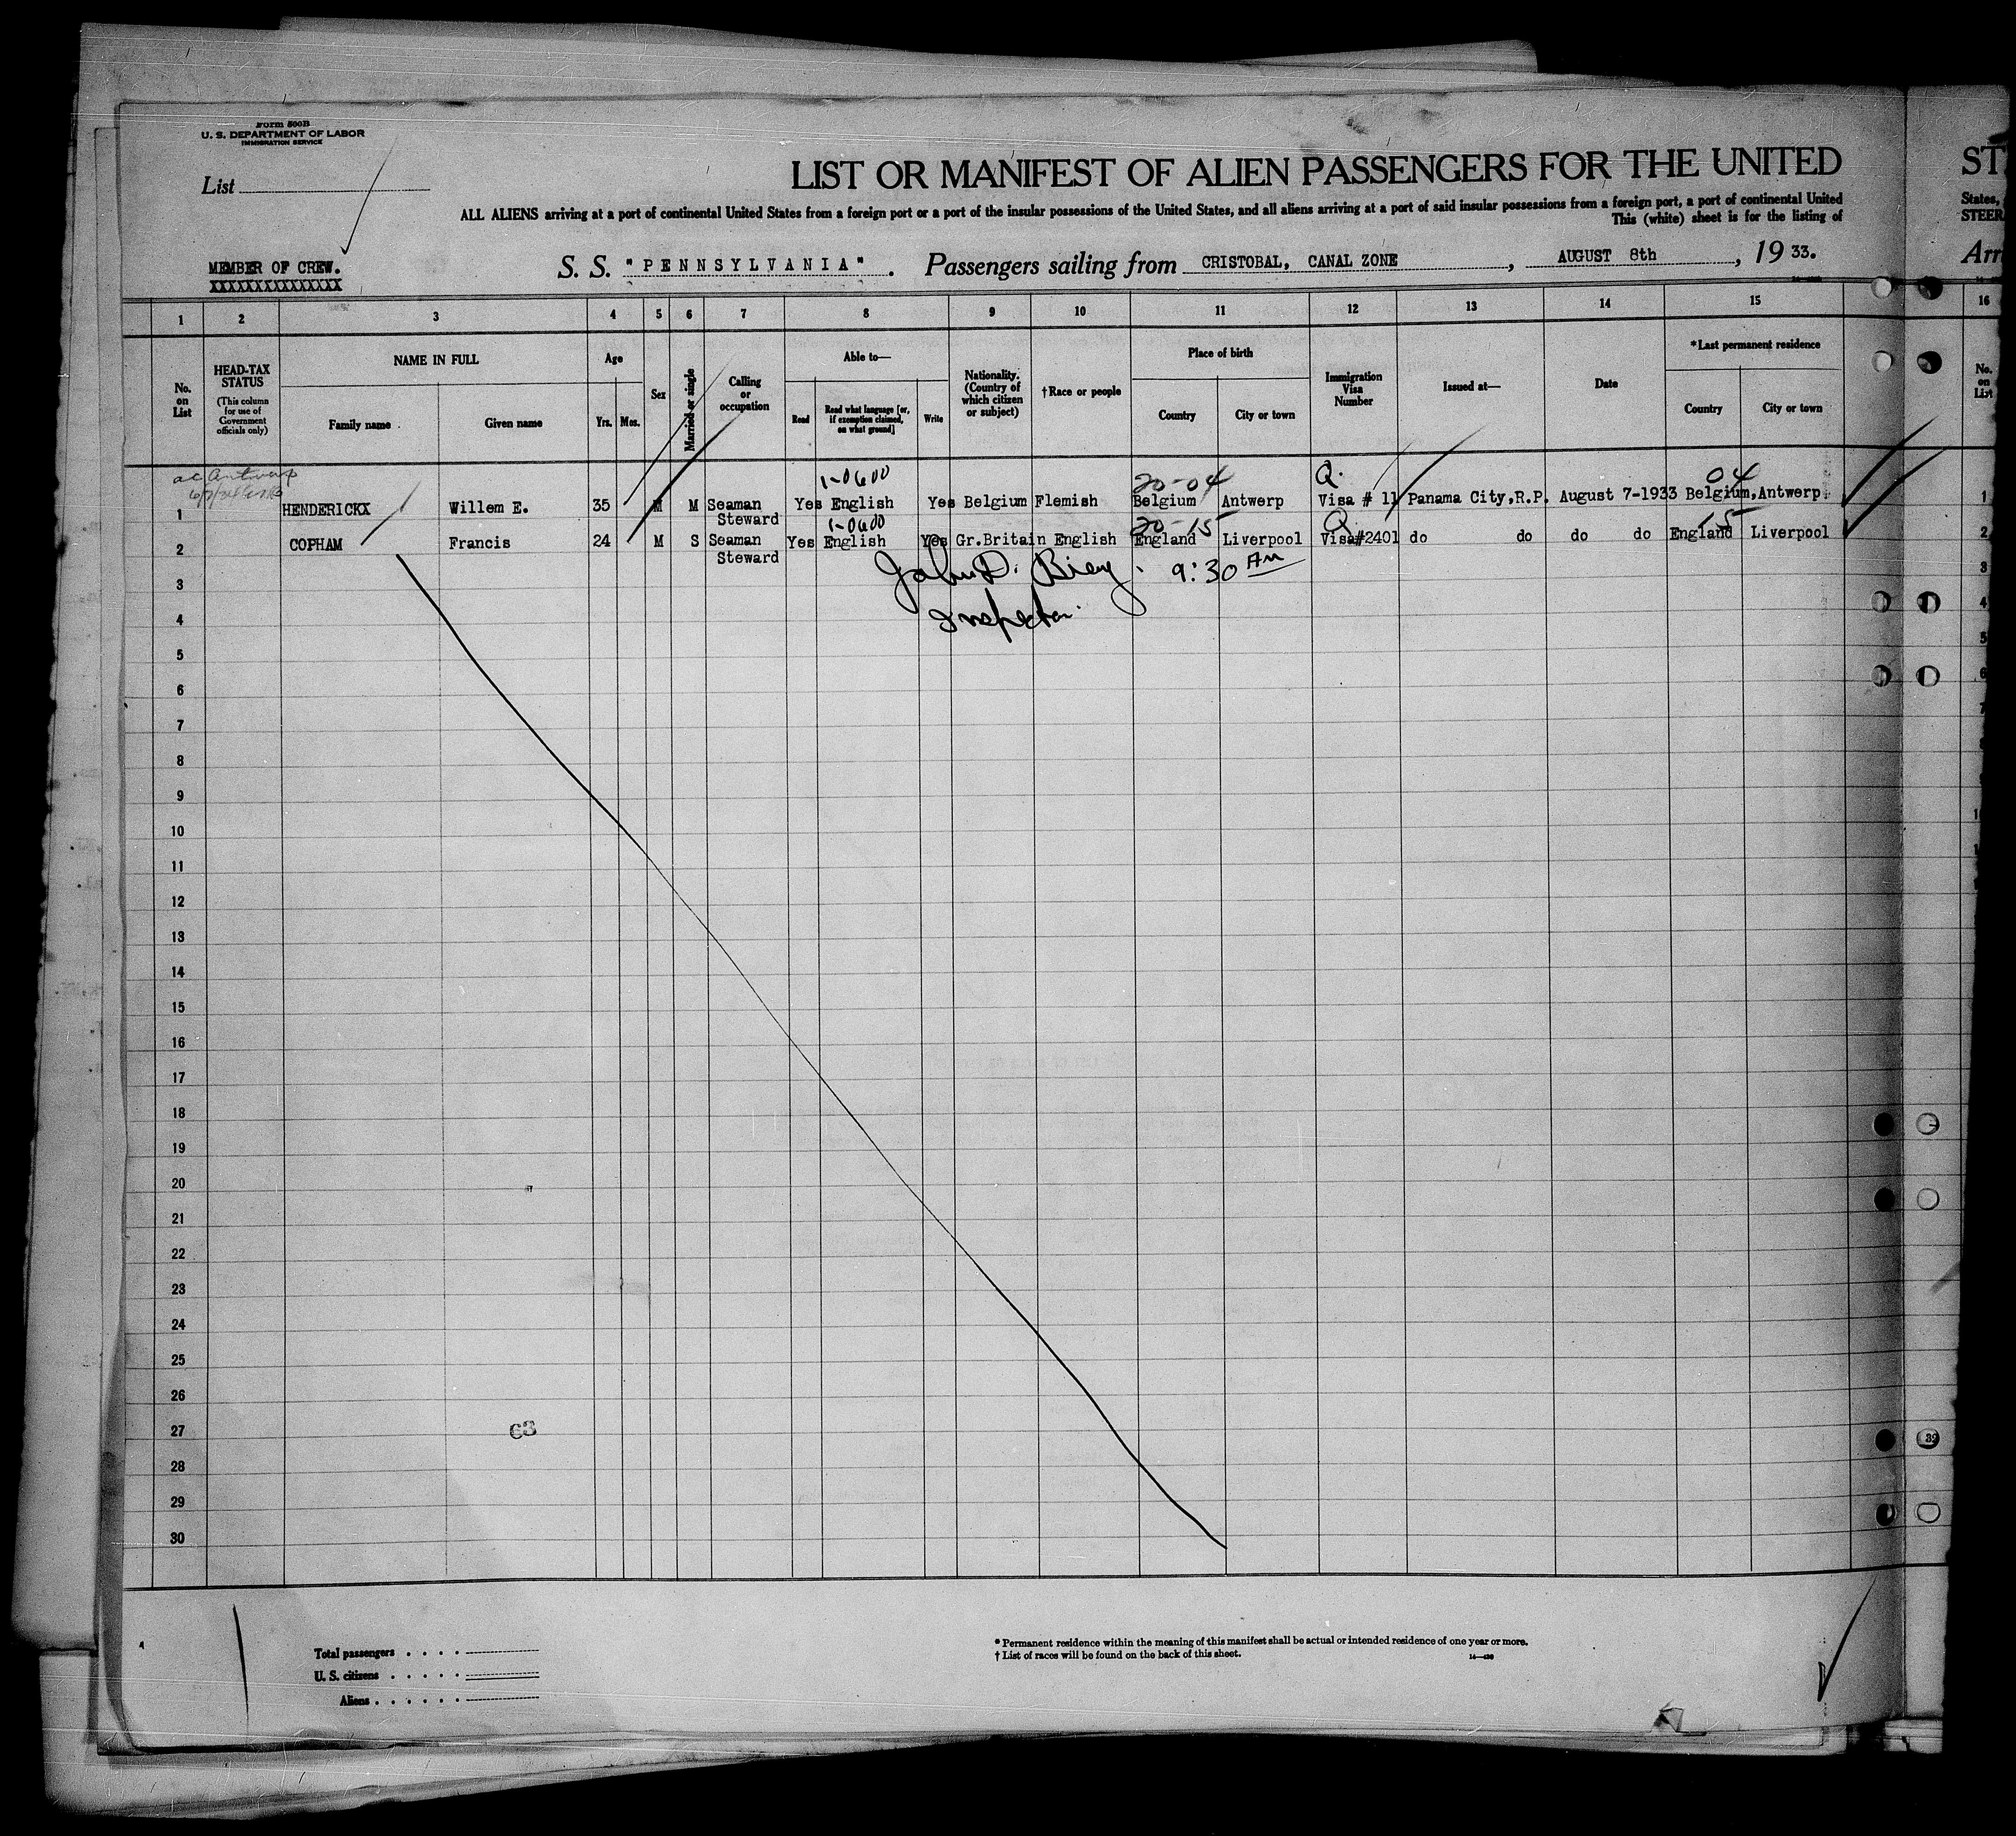 Form 500B
U. S. DEPARTMENT OF LABOR
IMMIGRATION SERVICE
List
LIST OR MANIFEST OF ALIEN PASSENGERS FOR THE UNITED
ST
ALL ALIENS arriving at a port of continental United States from a foreign port or a port of the insular possessions of the United States, and all aliens arriving at a port of said insular possessions from a foreign port, a port of continental United
States,
This (white) sheet is for the listing of
STEER
MEMBER OF CREW.
XXXXXXXXXXXXXXX
S. S. "PENNSYLVANIA". Passengers sailing from CRISTOBAL, CANAL ZONE, AUGUST 8th, 19 33.
Arr
1 2 3 4 5 6 7 8 9 10 11 12 13 14 15 16
No. on List
HEAD-TAX STATUS
(This column for use of Government officials only)
NAME IN FULL
Family name
Given name
Age
Yrs. Mos.
Sex
Married or single
Calling or occupation
Able to—
Read
Read what language [or, if exemption claimed, on what ground]
Write
Nationality. (Country of which citizen or subject)
†Race or people
Place of birth
Country
City or town
Immigration Visa Number
Issued at—
Date
*Last permanent residence
Country
City or town
No. on List
Antwerp
1-0600
20-04
Q.
04
1 HENDERICKX Willem E. 35 M M Seaman Yes English Yes Belgium Flemish Belgium Antwerp Visa # 11 Panama City,R.P. August 7-1933 Belgium,Antwerp. 1
Steward
1-0600
20-15
Q
15
2 COPHAM Francis 24 M S Seaman Yes English Yes Gr.Britain English England Liverpool Visa#2401 do do do do England Liverpool 2
Steward
John D. 9:30 AM
Inspector.
3
4
5
6
7
8
9
10
11
12
13
14
15
16
17
18
19
20
21
22
23
24
25
26
27
63
28
29
30
Total passengers
U. S. citizens
Aliens
* Permanent residence within the meaning of this manifest shall be actual or intended residence of one year or more.
† List of races will be found on the back of this sheet.